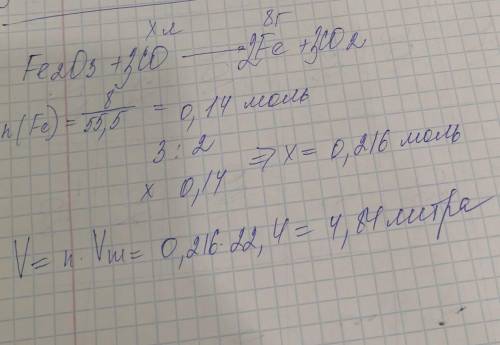 x л 8г
Fe2O3 + 3CO → 2Fe + 3CO2
n(Fe) = 8/55,5 = 0,14 моль
3 : 2
x 0,14 ⇒ x = 0,216 моль
V = n · Vm = 0,216 · 22,4 = 4,84 литра